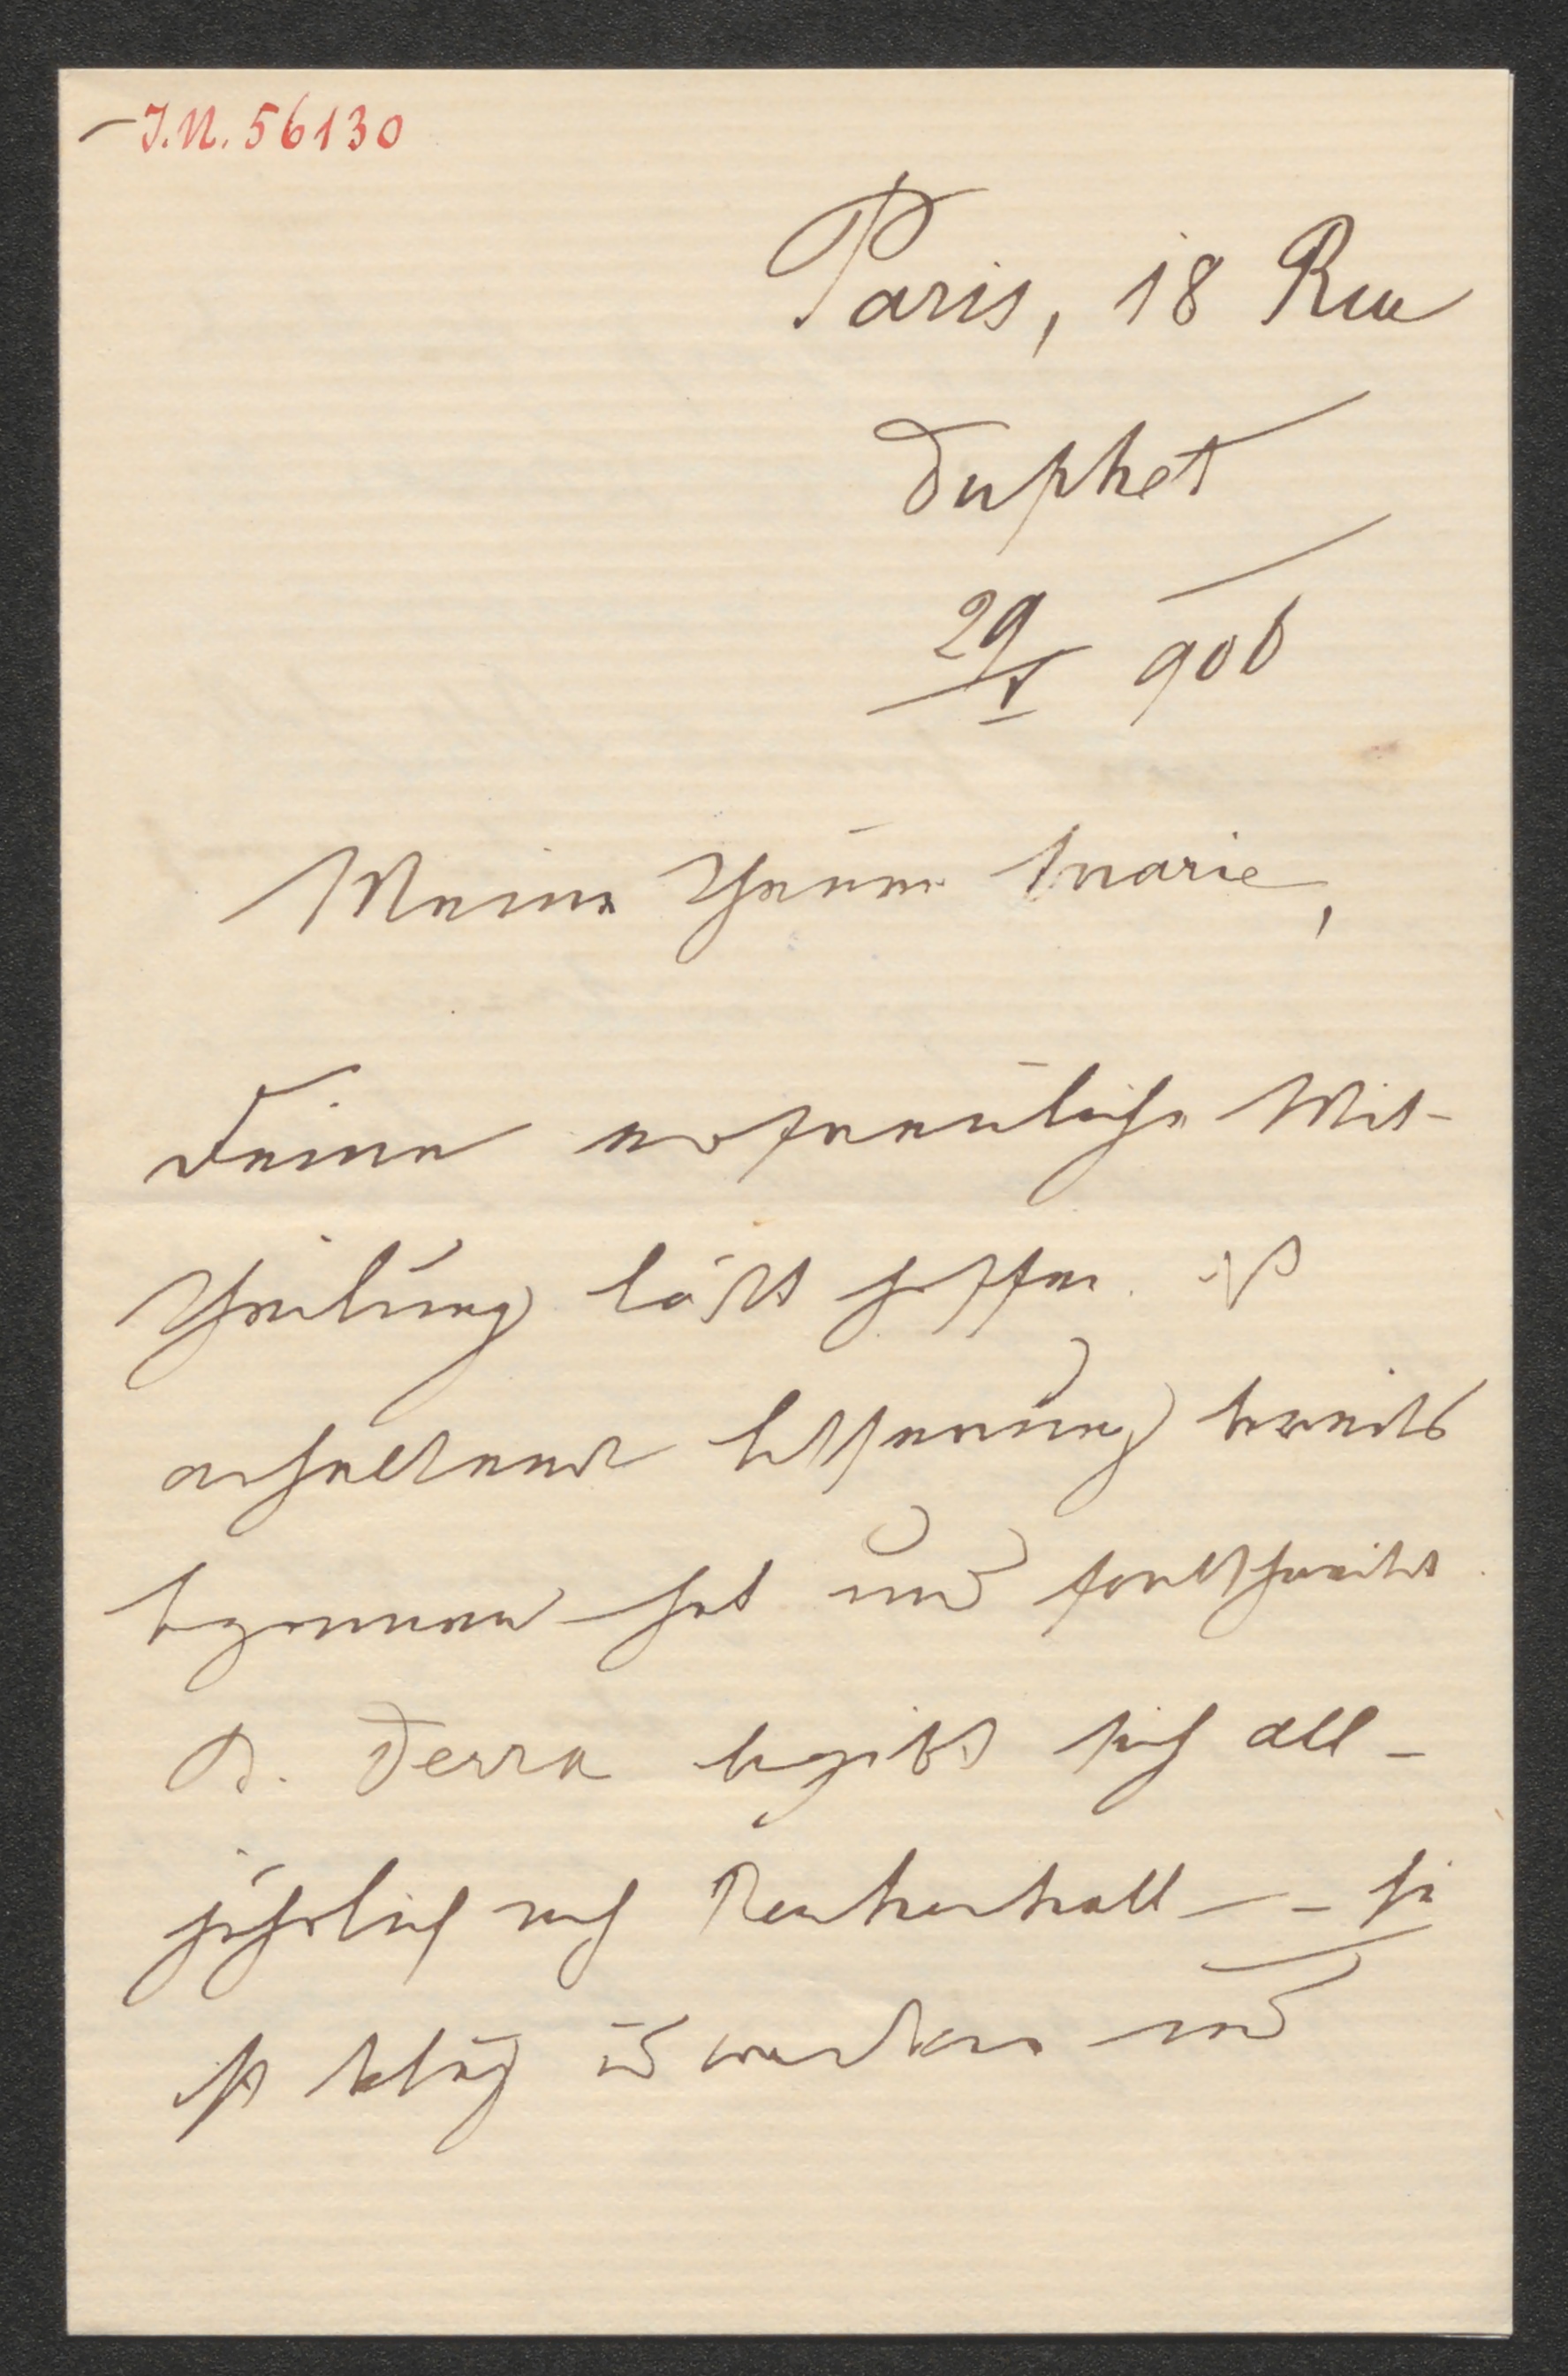 I.N. 56130
Paris, 18 Rue
Duphot
29/I 906
Meine theuere Marie,
Deine erfreuliche Mit-
theilung läßt hoffen
anhaltende Besserung bereits
begonnen hat und fortschreitet.
begibt sich all-
jährlich nach Reichenhall – sie
ist und